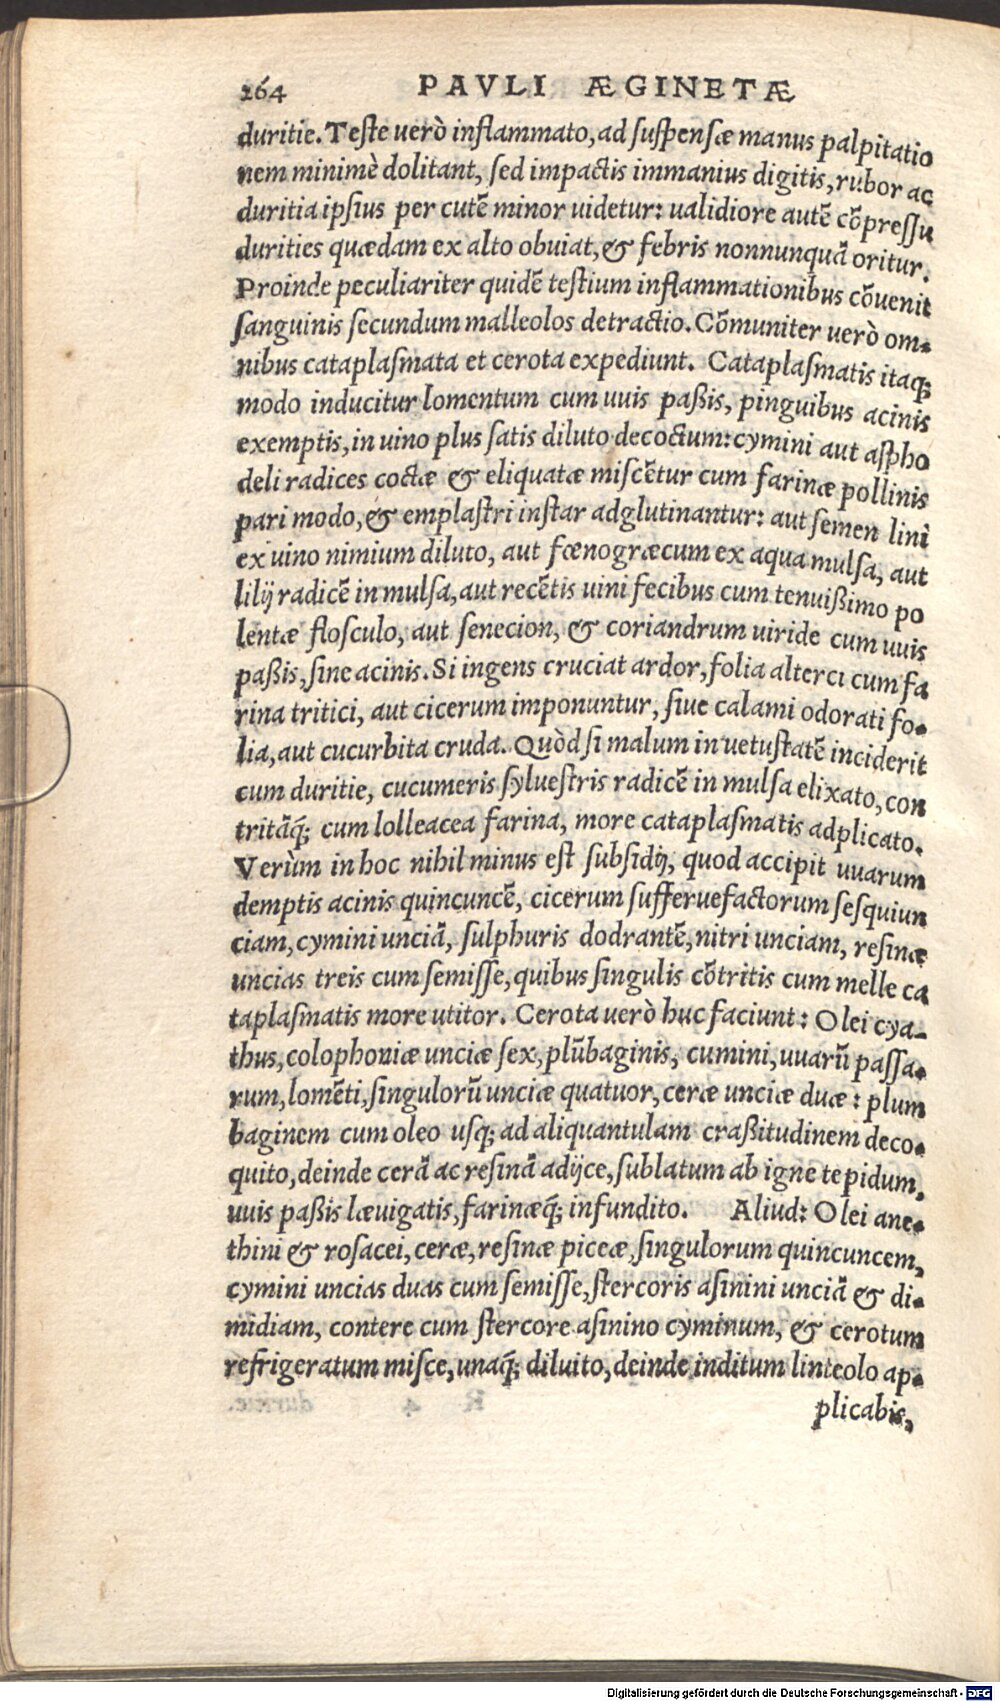 264 PAVLI ÆGINETÆ
duritie. Teste uerò inflammato, ad suspensæ manus palpitatio
nem minimè dolitant, sed impactis immanius digitis, rubor ac
duritia ipsius per cutē minor uidetur: ualidiore autē cōpressu
durities quædam ex alto obuiat, & febris nonnunquā oritur.
Proinde peculiariter quidē testium inflammationibus cōuenit
sanguinis secundum malleolos detractio. Cōmuniter uerò om-
nibus cataplasmata et cerota expediunt. Cataplasmatis itaq;
modo inducitur lomentum cum uuis paßis, pinguibus acinis
exemptis, in uino plus satis diluto decoctum: cymini aut aspho
deli radices coctæ & eliquatæ miscētur cum farinæ pollinis
pari modo, & emplastri instar adglutinantur: aut semen lini
ex uino nimium diluto, aut fœnogræcum ex aqua mulsa, aut
lilij radicē in mulsa, aut recētis uini fecibus cum tenuißimo po
lentæ flosculo, aut senecion, & coriandrum uiride cum uuis
paßis, sine acinis. Si ingens cruciat ardor, folia alterci cum fa
rina tritici, aut cicerum imponuntur, siue calami odorati fo-
lia, aut cucurbita cruda. Quòd si malum in uetustatē inciderit
cum duritie, cucumeris syluestris radicē in mulsa elixato, con
tritāq́; cum lolleacea farina, more cataplasmatis adplicato.
Verùm in hoc nihil minus est subsidij, quod accipit uuarum
demptis acinis quincuncē, cicerum sufferuefactorum sesquiun
ciam, cymini unciā, sulphuris dodrantē, nitri unciam, resinæ
uncias treis cum semisse, quibus singulis cōtritis cum melle ca
taplasmatis more utitor. Cerota uerò huc faciunt: Olei cya-
thus, colophoniæ unciæ sex, plūbaginis, cumini, uuarū passa-
rum, lomēti, singulorū unciæ quatuor, ceræ unciæ duæ: plum
baginem cum oleo usq; ad aliquantulam craßitudinem deco-
quito, deinde cerā ac resinā adijce, sublatum ab igne tepidum,
uuis paßis læuigatis, farinæq́; infundito. Aliud: Olei ane-
thini & rosacei, ceræ, resinæ piceæ, singulorum quincuncem,
cymini uncias duas cum semisse, stercoris asinini unciā & di-
midiam, contere cum stercore asinino cyminum, & cerotum
refrigeratum misce, unaq́; diluito, deinde inditum linteolo ap-
plicabis,
Digitalisierung gefördert durch die Deutsche Forschungsgemeinschaft - DFG